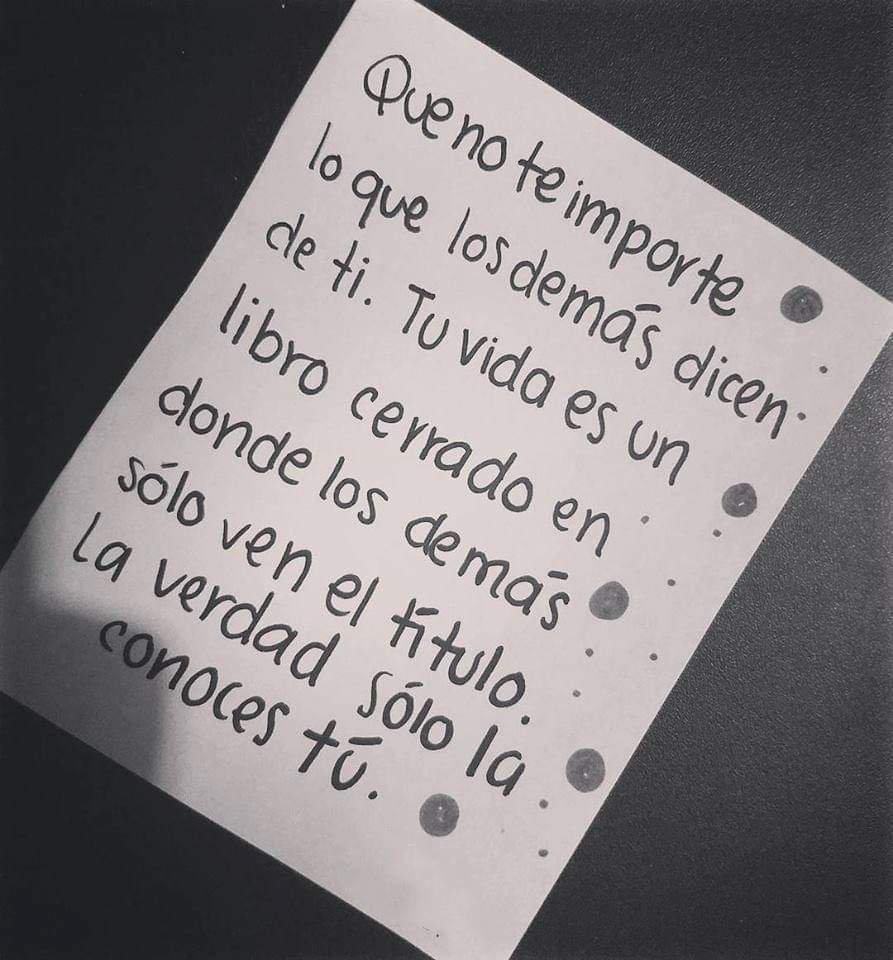 Que no te importe
lo que los demás dicen
de ti. Tu vida es un
libro cerrado en
donde los demás
sólo ven el título.
La verdad sólo la
conoces tú.